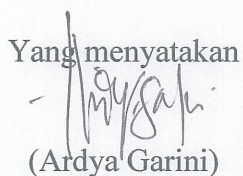 Yang menyatakan
(Ardya Garini)